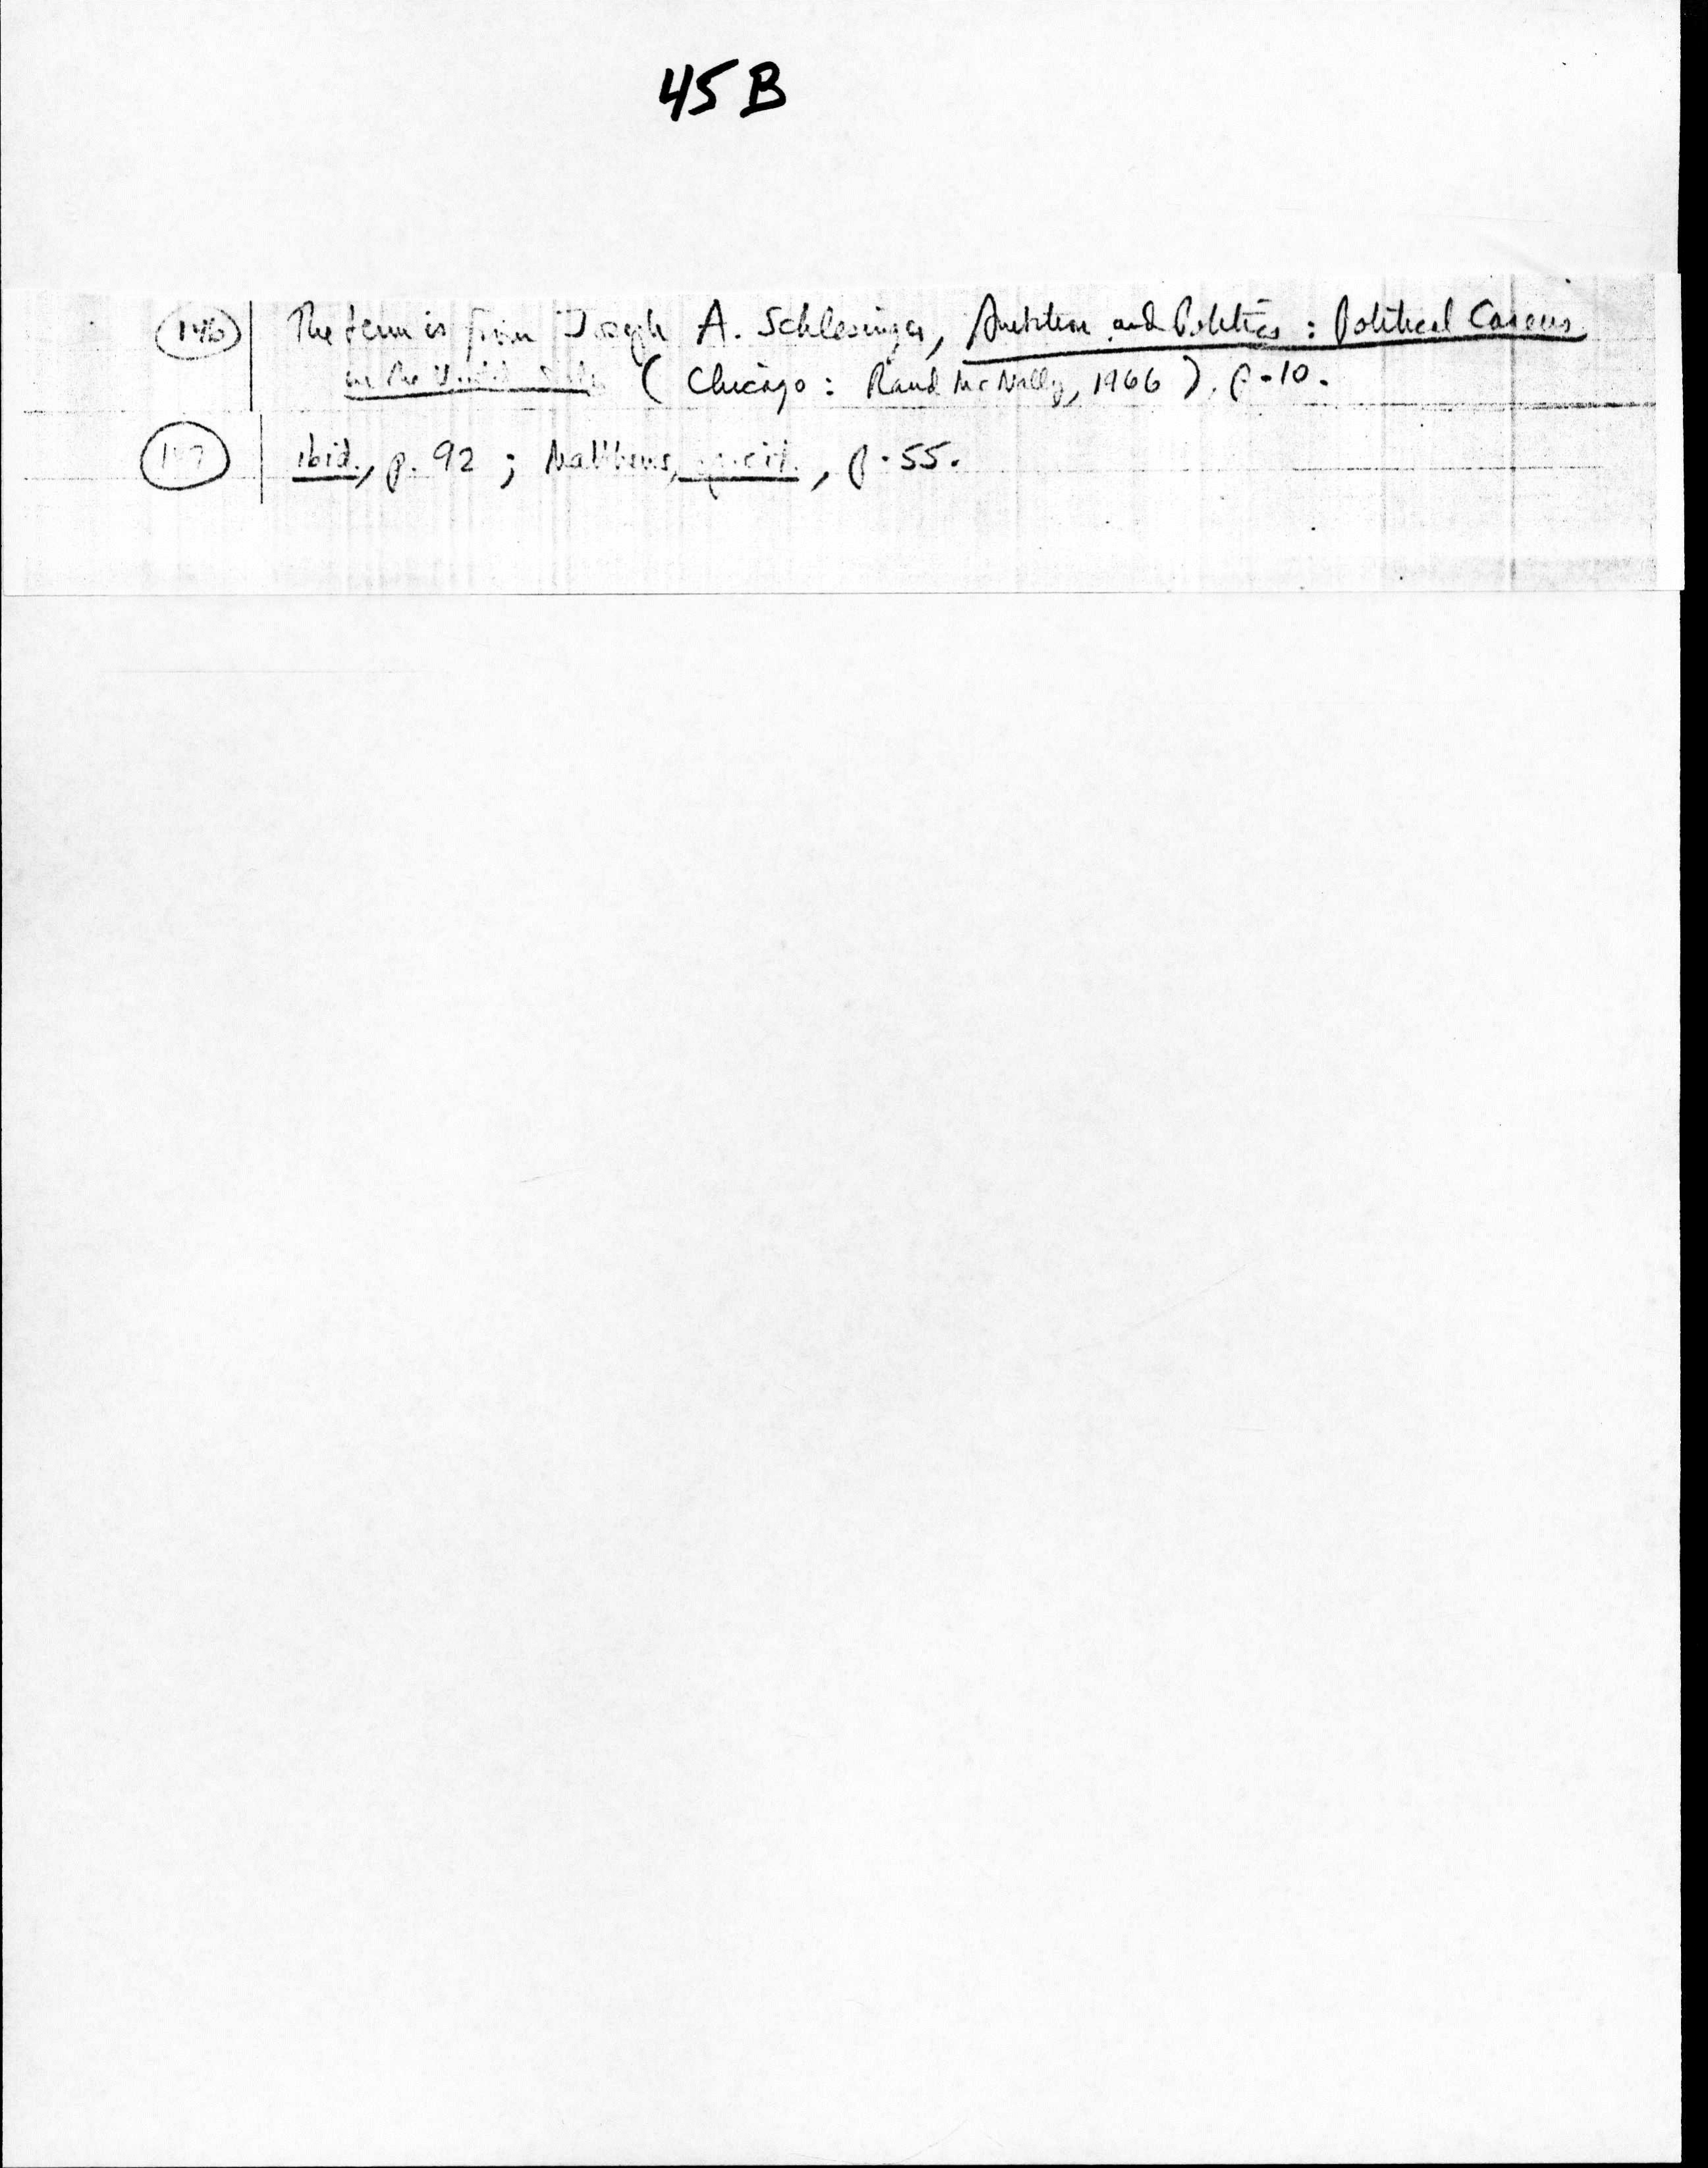 45B
146 The term is from Joseph A. Schlesinger, Ambition and Politics: Political Careers
in the United States (Chicago: Rand McNally, 1966), p. 10.
ibid., p. 92; Matthews, op. cit., p. 55.